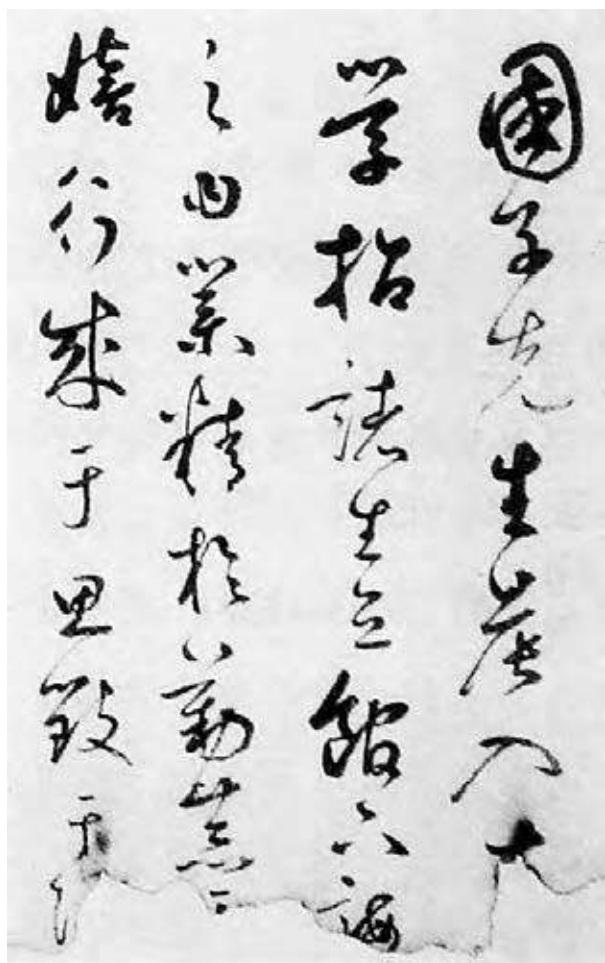 國子先生晨入大
学招諸生立館下誨
之曰業精於勤荒于
嬉行成于思毀于